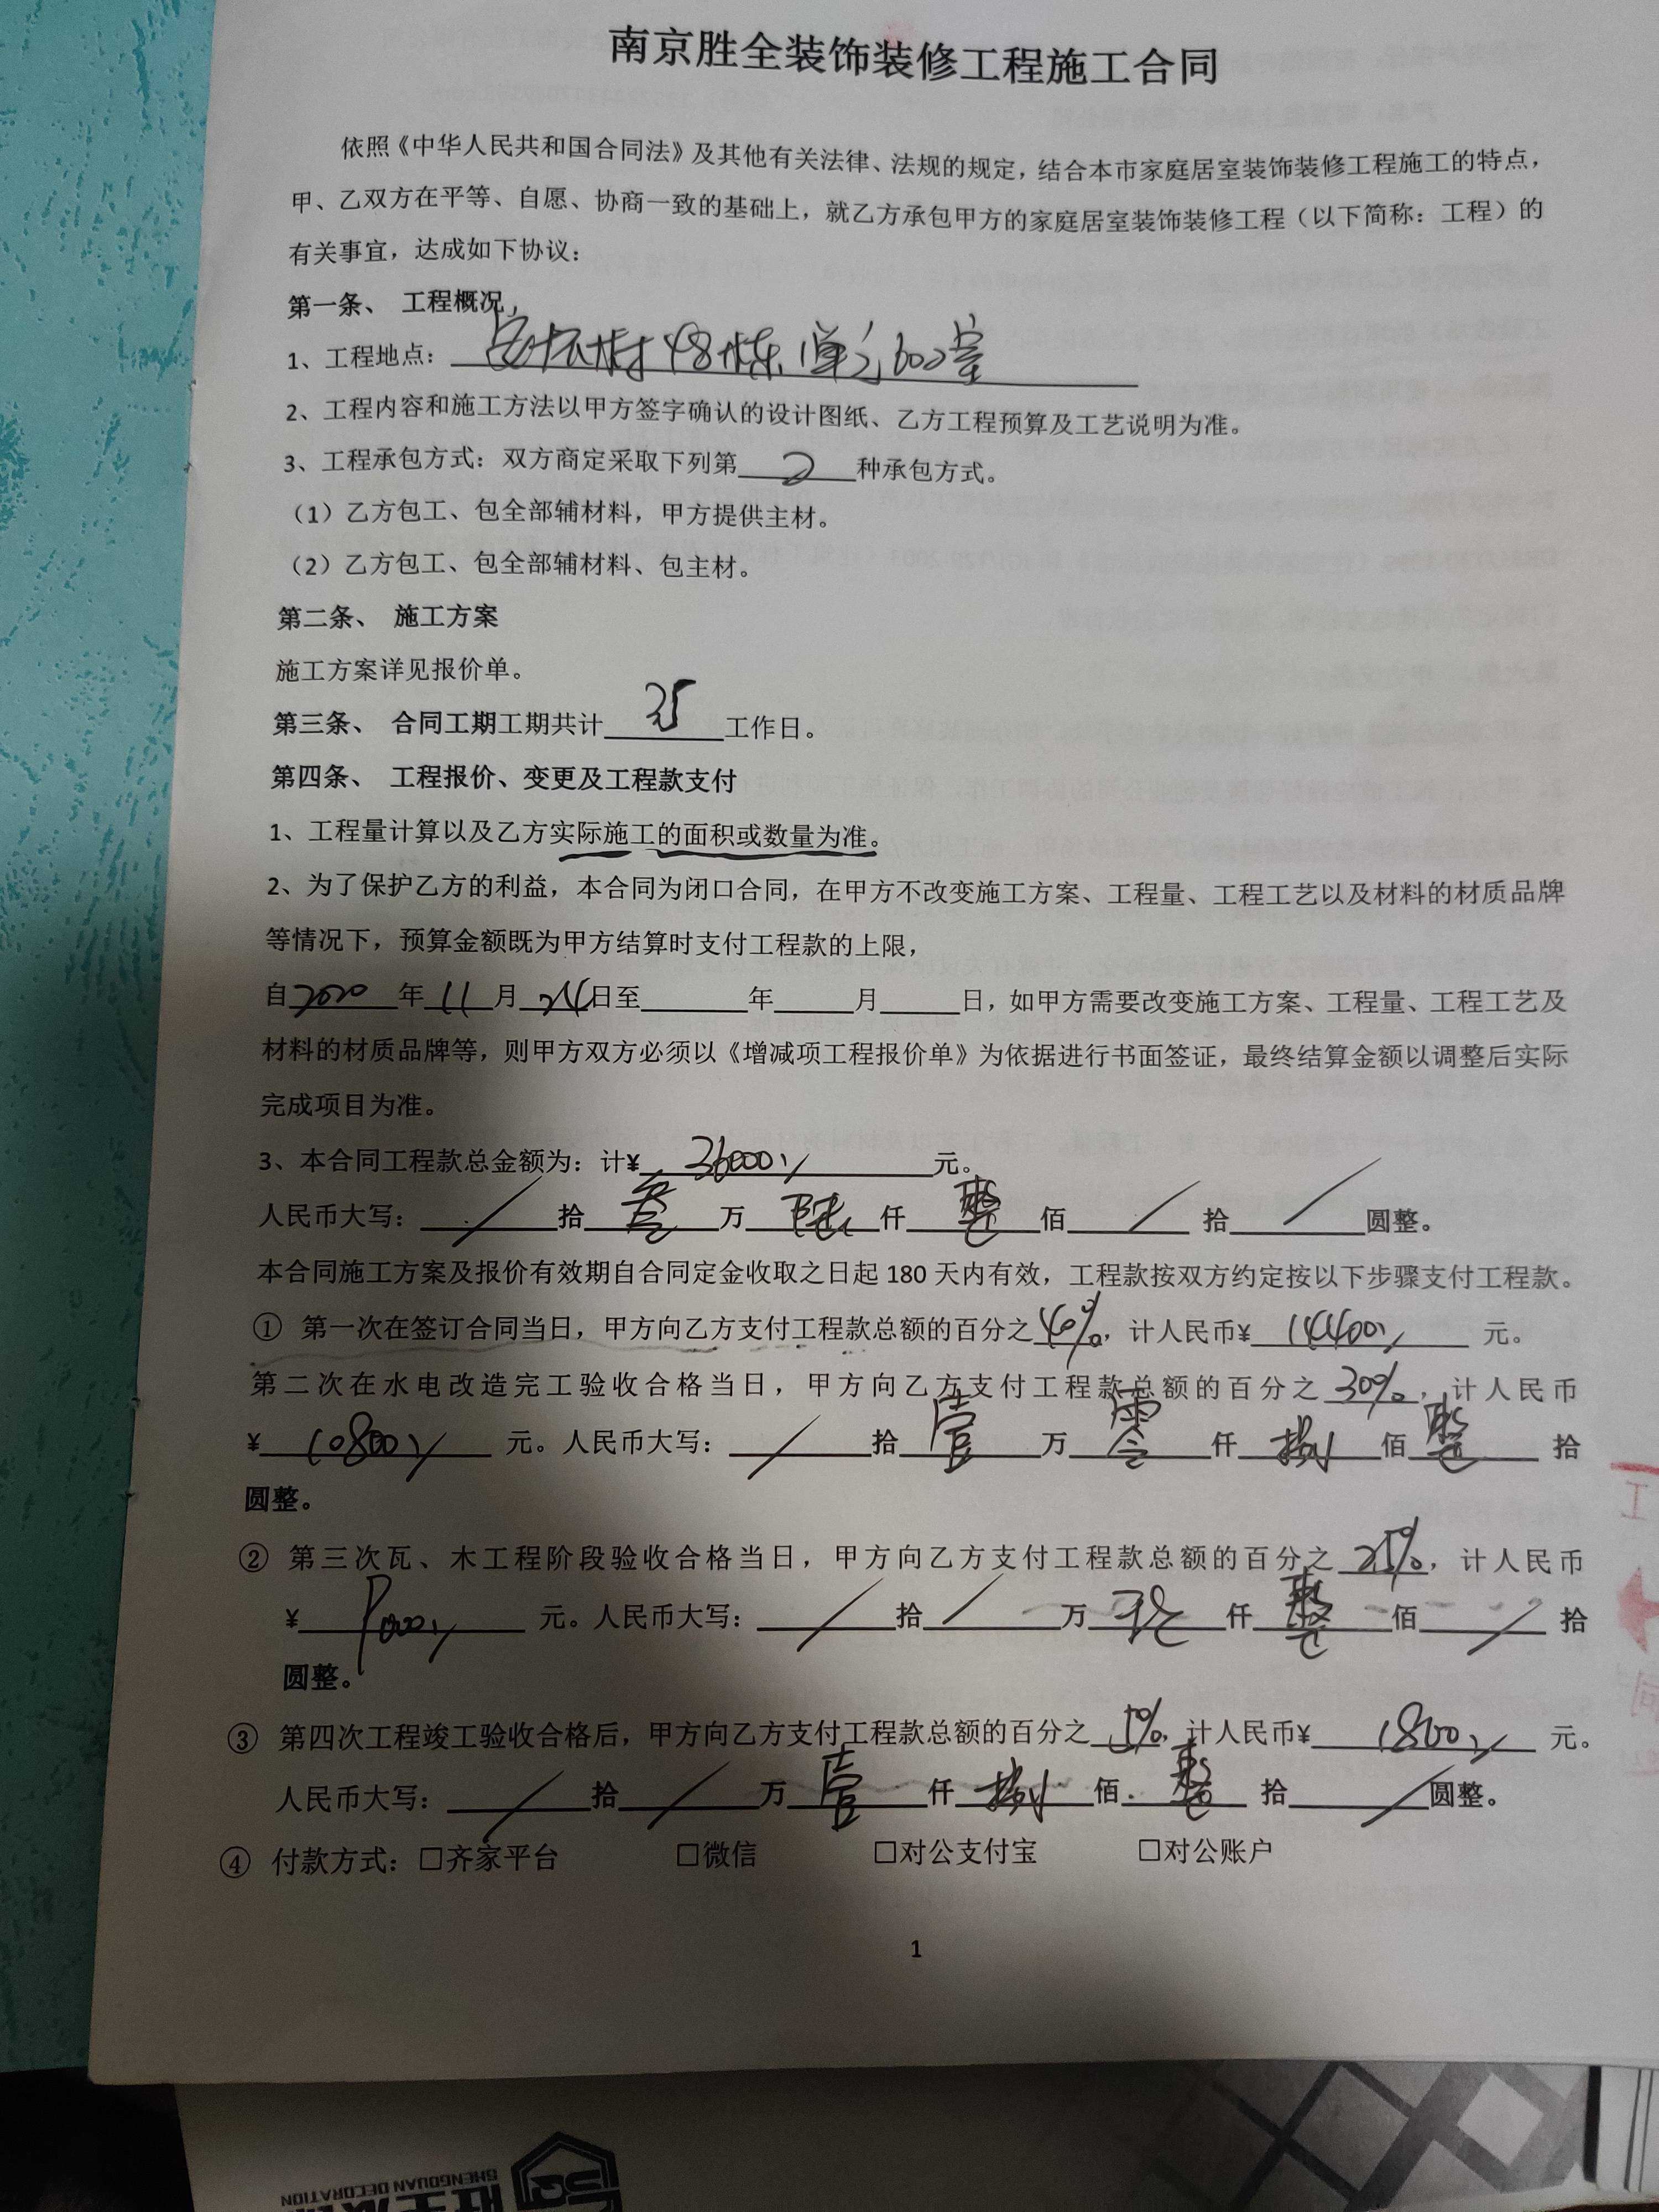 南京胜全装饰装修工程施工合同
依照《中华人民共和国合同法》及其他有关法律、法规的规定，结合本市家庭居室装饰装修工程施工的特点，
甲、乙双方在平等、自愿、协商一致的基础上，就乙方承包甲方的家庭居室装饰装修工程（以下简称：工程）的
有关事宜，达成如下协议：
第一条、 工程概况
1、工程地点： 村48栋1单元602室
2、工程内容和施工方法以甲方签字确认的设计图纸、乙方工程预算及工艺说明为准。
3、工程承包方式：双方商定采取下列第 2 种承包方式。
（1）乙方包工、包全部辅材料，甲方提供主材。
（2）乙方包工、包全部辅材料、包主材。
第二条、 施工方案
施工方案详见报价单。
第三条、 合同工期工期共计 25 工作日。
第四条、 工程报价、变更及工程款支付
1、工程量计算以及乙方实际施工的面积或数量为准。
2、为了保护乙方的利益，本合同为闭口合同，在甲方不改变施工方案、工程量、工程工艺以及材料的材质品牌
等情况下，预算金额既为甲方结算时支付工程款的上限，
自 2020 年 11 月 日至 年 月 日，如甲方需要改变施工方案、工程量、工程工艺及
材料的材质品牌等，则甲方双方必须以《增减项工程报价单》为依据进行书面签证，最终结算金额以调整后实际
完成项目为准。
3、本合同工程款总金额为：计¥ 36000 元。
人民币大写： / 拾 叁 万 陆 仟 整 佰 / 拾 / 圆整。
本合同施工方案及报价有效期自合同定金收取之日起 180 天内有效，工程款按双方约定按以下步骤支付工程款。
① 第一次在签订合同当日，甲方向乙方支付工程款总额的百分之 40%，计人民币¥ 14400 元。
第二次在水电改造完工验收合格当日，甲方向乙方支付工程款总额的百分之 30%，计人民币
¥ 10800 元。人民币大写： / 拾 壹 万 零 仟 捌 佰 整 拾
圆整。
② 第三次瓦、木工程阶段验收合格当日，甲方向乙方支付工程款总额的百分之 25%，计人民币
¥ 9000 元。人民币大写： / 拾 / 万 玖 仟 整 佰 / 拾
圆整。
③ 第四次工程竣工验收合格后，甲方向乙方支付工程款总额的百分之 5%，计人民币¥ 1800 元。
人民币大写： / 拾 / 万 壹 仟 捌 佰 整 拾 / 圆整。
④ 付款方式：□齐家平台 □微信 □对公支付宝 □对公账户
1
SHENGQUAN DECORATION